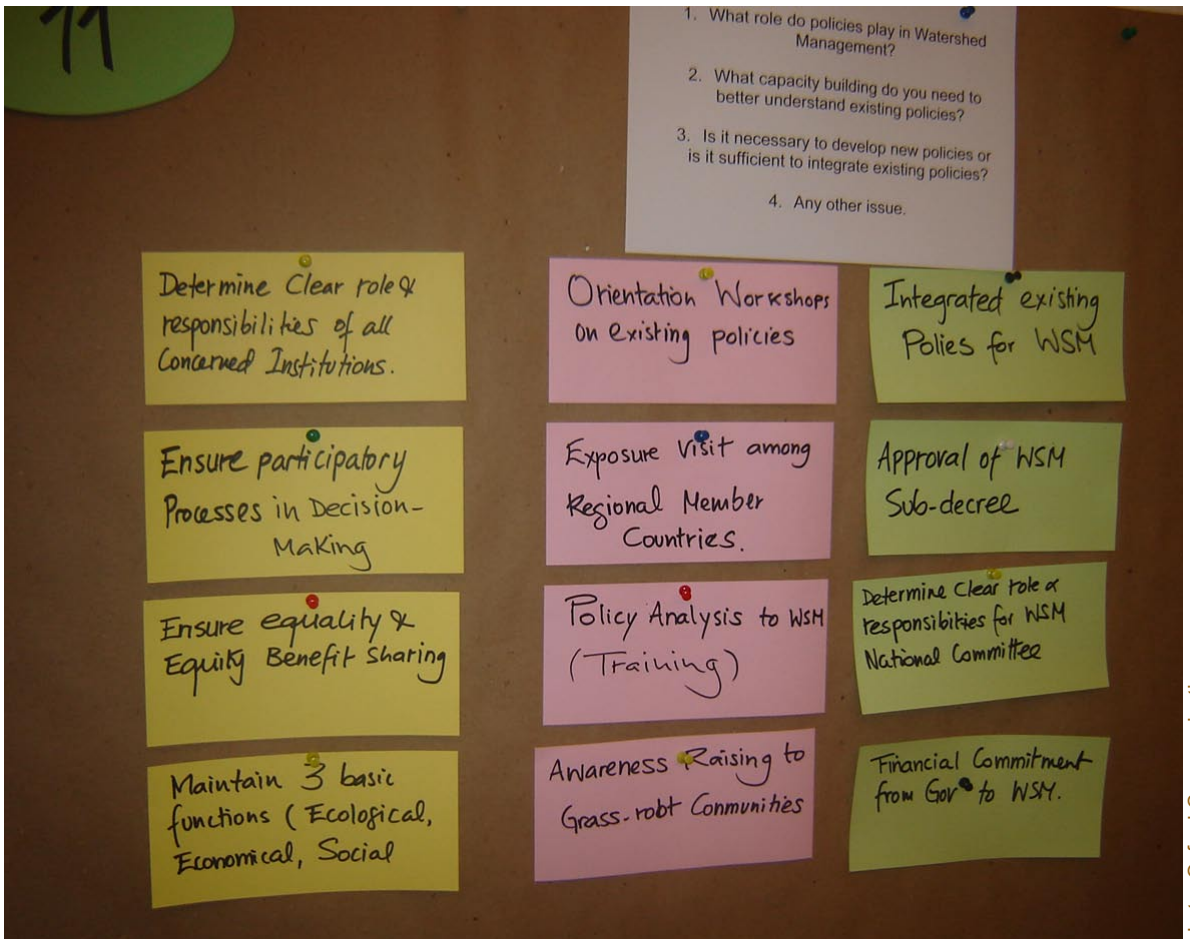 11
1. What role do policies play in Watershed
Management?
2. What capacity building do you need to
better understand existing policies?
3. Is it necessary to develop new policies or
is it sufficient to integrate existing policies?
4. Any other issue.
Determine Clear role &
responsibilities of all
Concerned Institutions.
Ensure participatory
Processes in Decision-
Making
Ensure equality &
Equity Benefit Sharing
Maintain 3 basic
functions ( Ecological,
Economical, Social
Orientation Workshops
on existing policies
Exposure Visit among
Regional Member
Countries.
Policy Analysis to WSM
(Training)
Awareness Raising to
Grass-robt Communities
Integrated existing
Polies for WSM
Approval of WSM
Sub-decree
Determine Clear role &
responsibities for WSM
National Committee
Financial Commitment
from Gov to WSM.